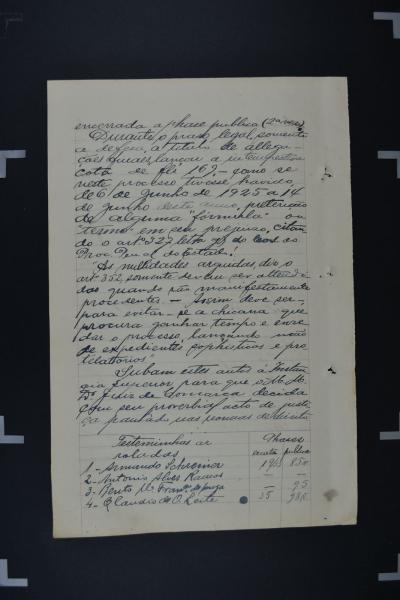 encerrada a phase publica (2ª vez).
Durante o praso legal, somente
a defesa, a titulo de allega-
ções lançou a
cóta de fls 169, - como se
neste processo tivesse havido,
de 6 de Junho de 1925 a 14
de Junho deste anno, preterição
de alguma "formula" ou
"termo" em seu prejuizo, citan-
do o artº 327 letra do do
Proc. Penal do Estado!
"As nullidades arguidas, diz o
artº 352, somente devem ser
das quando são manifestamente
procedentes. - Assim deve ser,
para evitar-se a chicana que
procura ganhar tempo e enre-
dar o processo, lançando mão
de expedientes sophisticos e pro-
telatorios".
Subam estes autos á Instan-
cia Superior para que o M. M.
Dr. Juiz de Comarca decida
com seu proverbial acto de justi-
ça pautado nas normas de direito
Testemunhas ar-
roladas
Phases
secreta publica
1 - Armando Schreiner 85v
2 - Antonio Alves Ramos — —
3 - Bento Mª Franco de Souza — 95
4 - Claudio de O. Leite 35